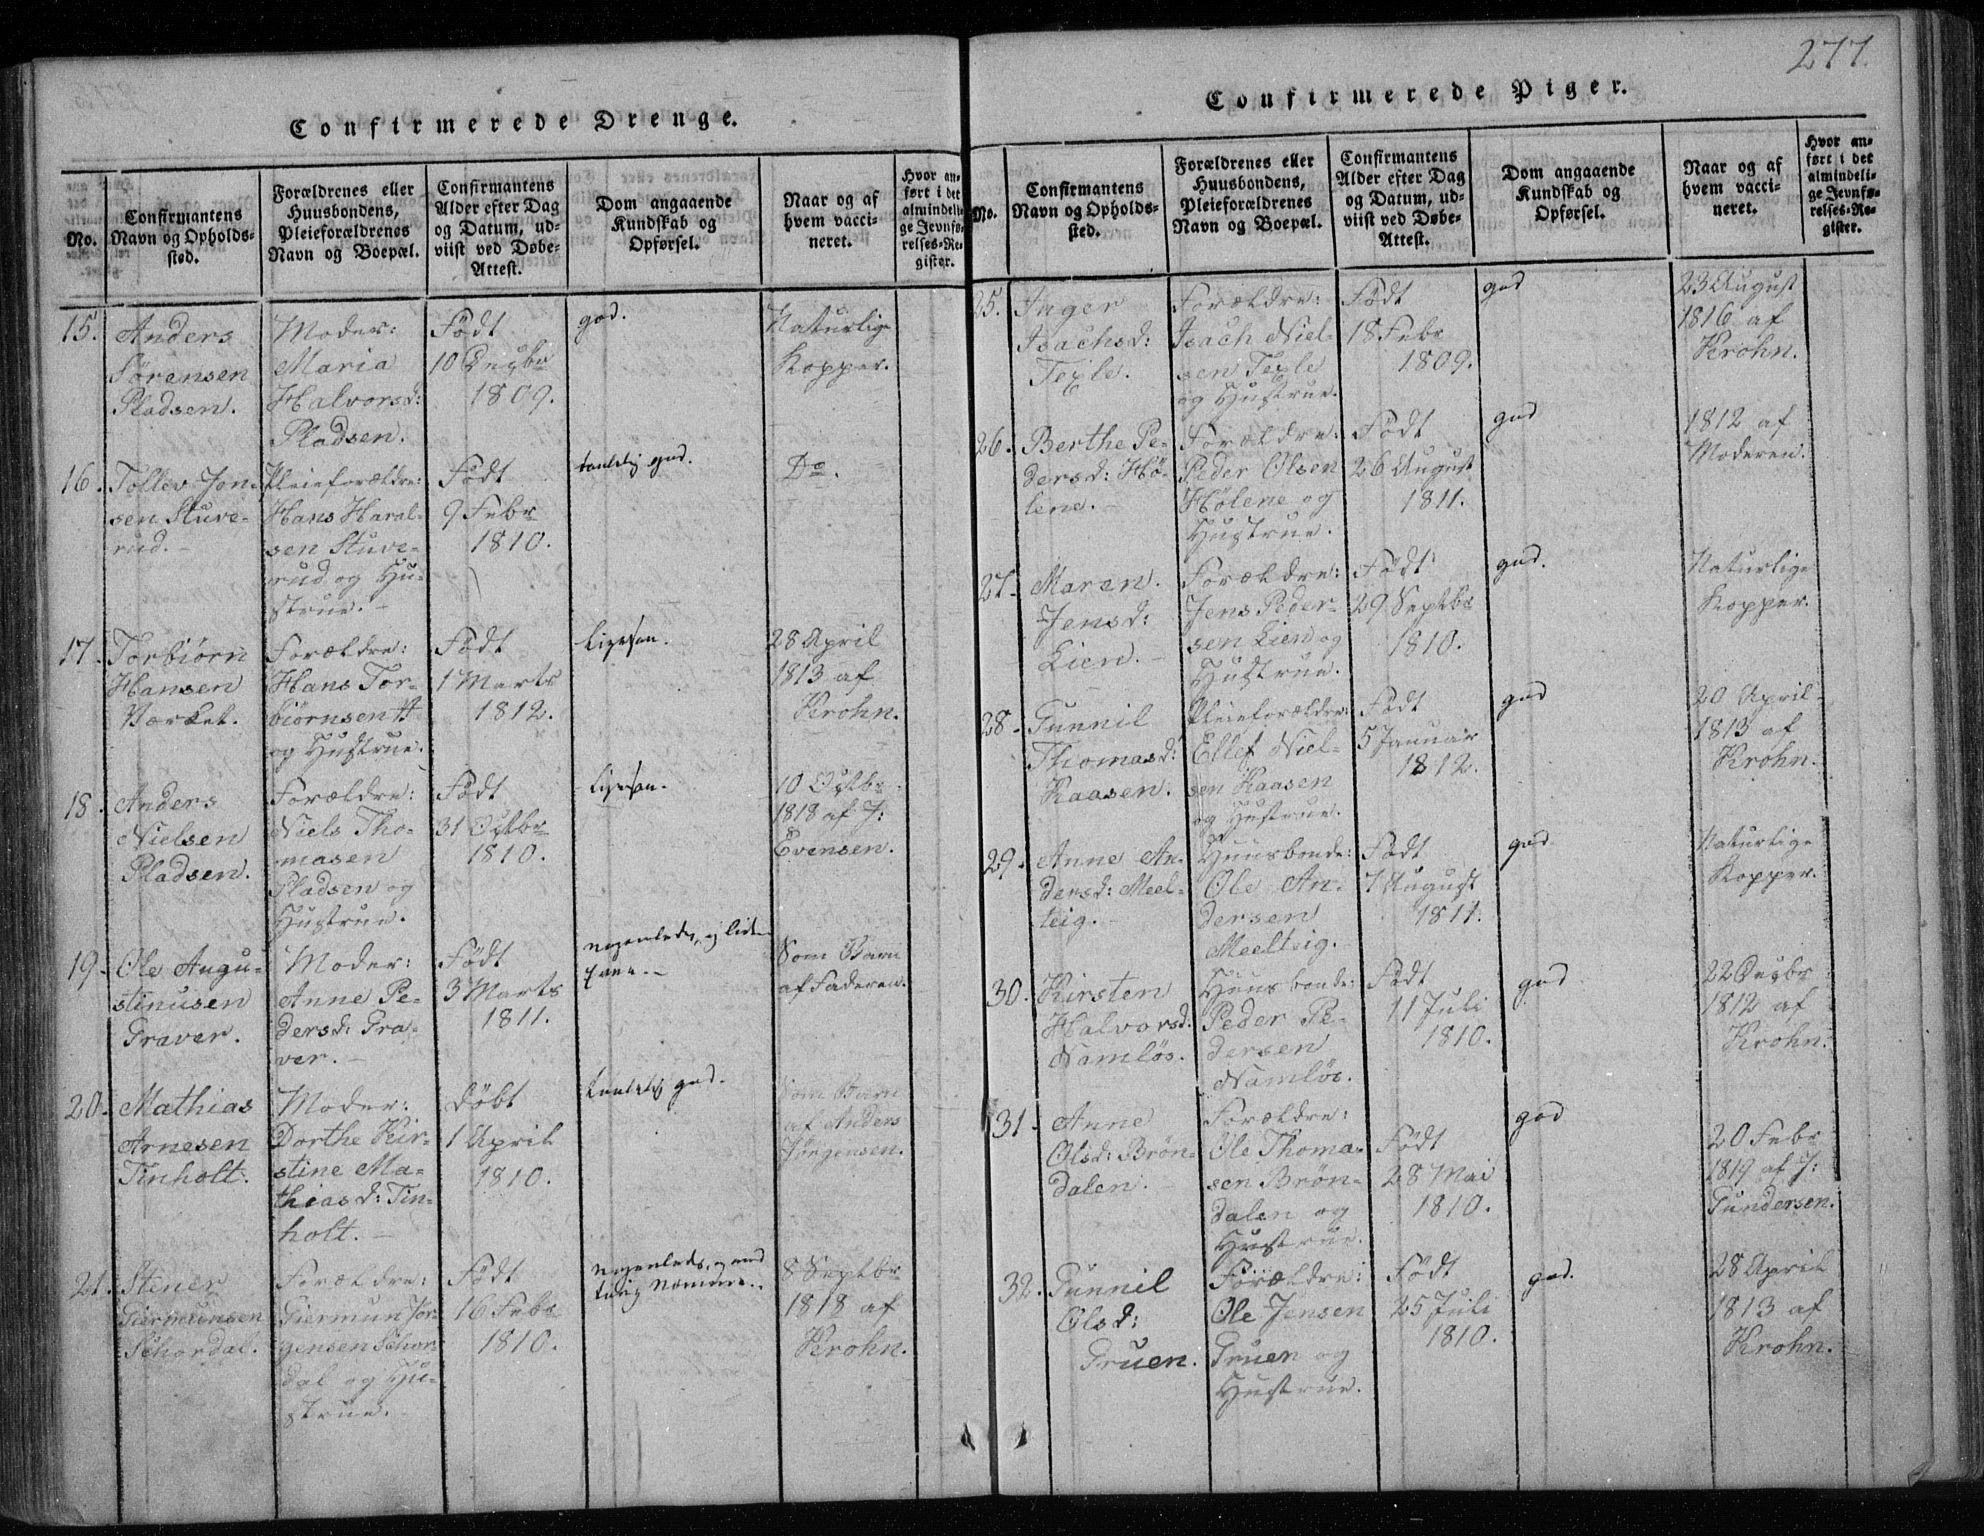 277.
Confirmerede Drenge.
No.
Confirmantens
Navn og Opholds-
sted.
Forældrenes eller
Huusbondens,
Pleieforældrenes
Navn og Boepæl.
Confirmantens
Alder efter Dag
og Datum, ud-
viist ved Døbe-
Attest.
Dom angaaende
Kundskab og
Opførsel.
Naar og af
hvem vacci-
neret.
Hvor an-
ført i det
almindeli-
ge Jevnfø-
relses-Re-
gister.
15.
Anders
Sørensen
Pladsen.
Moder:
Maria
Halvorsd:
Pladsen.
Født
10 Decbr
1809.
god.
Naturlige
Kopper.
16.
Tollev Jon-
sen Stuve-
rud.
Pleieforældre:
Hans Haral-
sen Stuve-
rud og Hu-
strue.
Født
9 Febr
1810.
taalelig god.
Do.
17.
Torbiørn
Hansen
Værket.
Forældre:
Hans Tor-
biørnsen
og Hustrue.
Født
1 Marts
1812.
ligesaa.
28 April
1813 af
Krohn.
18.
Anders
Nielsen
Pladsen.
Forældre:
Niels Tho-
masen
Pladsen og
Hustrue.
Født
31 Octbr
1810.
ligesaa.
10 Octbr
1818 af J:
Evensen.
19.
Ole Augu-
stinusen
Graver.
Moder:
Anne Pe-
dersd: Gra-
ver.
Født
3 Marts
1811.
nogenledes, og
Som Barn
af Faderen.
20.
Mathias
Arnesen
Tinholt.
Moder:
Dorthe Kir-
stine Ma-
thiasd: Tin-
holt.
døbt
1 April
1810.
taalelig god.
Som Barn
af Anders
Jørgensen.
21.
Stener
Giermunsen
Schordal.
Forældre:
Giermun Jør-
gensen Schor-
dal og Hu-
strue.
Født
16 Febr
1810.
nogenledes,
8 Septbr
1818 af
Krohn.
Confirmerede Piger.
No.
Confirmantens
Navn og Opholds-
sted.
Forældrenes eller
Huusbondens,
Pleieforældrenes
Navn og Boepæl.
Confirmantens
Alder efter Dag
og Datum, ud-
viist ved Døbe-
Attest.
Dom angaaende
Kundskab og
Opførsel.
Naar og af
hvem vacci-
neret.
Hvor an-
ført i det
almindeli-
ge Jevnfø-
relses-Re-
gister.
25.
Inger
Isachsd:
Texle.
Forældre:
Isach Niel-
sen Texle
og Hustrue.
Født
18 Febr
1809.
god
23 August
1816 af
Krohn.
26.
Berthe Pe-
dersd: Hø-
lene.
Forældre:
Peder Olsen
Hølene og
Hustrue.
Født
26 August
1811.
god
1812 af
Moderen.
27.
Maren
Jensd:
Lien.
Forældre:
Jens Peder-
sen Lien og
Hustrue.
Født
29 Septbr
1810.
god.
Naturlige
Kopper.
28.
Gunnil
Thomasd:
Kaasen.
Pleieforældre:
Ellef Niel-
sen Kaasen
og Hustrue.
Født
5 Januar
1812.
god
20 April
1813 af
Krohn.
29.
Anne An-
dersd: Meel-
teig.
Huusbonde:
Ole An-
dersen
Meelteig.
Født
7 August
1811.
god
Naturlige
Kopper.
30.
Kirsten
Halvorsd:
Namløs.
Huusbonde:
Peder Pe-
dersen
Namløs.
Født
11 Juli
1810.
god
22 Decbr
1812 af
Krohn.
31.
Anne
Olsd: Brøn-
dalen.
Forældre:
Ole Thoma-
sen Brøn-
dalen og
Hustrue.
Født
28 Mai
1810.
god
20 Febr
1819 af J:
Gundersen.
32.
Gunnil
Olsd:
Gruen.
Forældre:
Ole Jensen
Gruen og
Hustrue.
Født
25 Juli
1810.
god.
28 April
1813 af
Krohn.